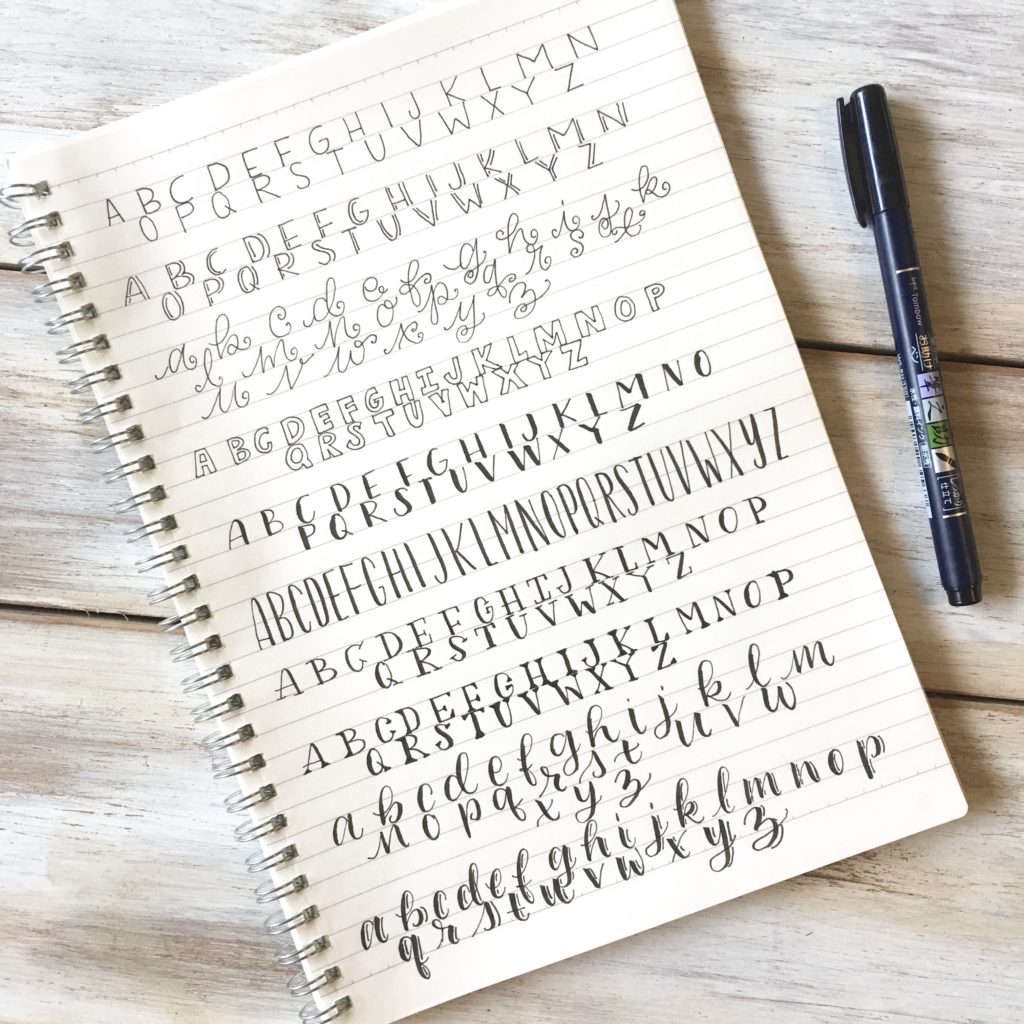 A B C D E F G H I J K L M N
O P Q R S T U V W X Y Z
A B C D E F G H I J K L M N
O P Q R S T U V W X Y Z
a b c d e f g h i j k
l m n o p q r s t
u v w x y z
A B C D E F G H I J K L M N O P
Q R S T U V W X Y Z
A B C D E F G H I J K L M N O
P Q R S T U V W X Y Z
A B C D E F G H I J K L M N O P Q R S T U V W X Y Z
A B C D E F G H I J K L M N O P
Q R S T U V W X Y Z
A B C D E F G H I J K L M N O P
Q R S T U V W X Y Z
a b c d e f g h i j k l m
n o p q r s t u v w
x y z
a b c d e f g h i j k l m n o p
q r s t u v w x y z
Tombow
お助け
筆之助
しっかり
仕立て